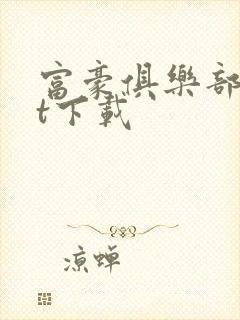 富豪俱樂部
t下載
凉蝉